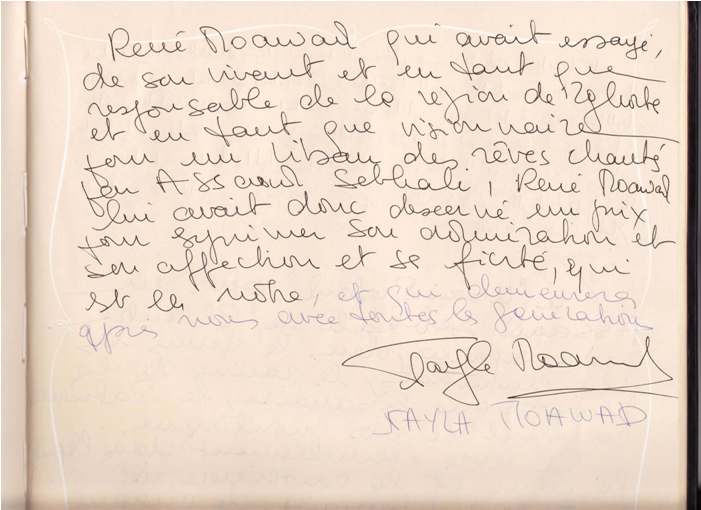 René Moawad qui avait essayé,
de son vivant et en tant que
responsable de la région de Zghorta
et en tant que visionnaire
pour un Liban des rêves chantés
par Assaad Sebhali, René Moawad
lui avait donc descerné un prix
pour exprimer son admiration et
son affection et sa fierté, qui
est la nôtre, et qui demeurera
après nous avec toutes les générations
Nayla Moawad
NAYLA MOAWAD